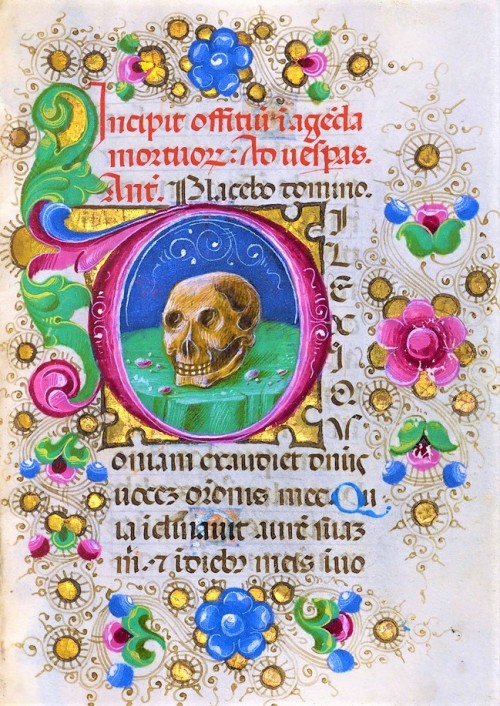 Incipit offitiū ī agēda
mortuoꝝ: Ad uespas.
Ant̄. Placebo domino.
D
I
L
E
X
I
Q
V
oniam exaudiet dn̄s
uocez orōnis mee. Qu
ia īclinauit aurē suaz
m̄. ⁊ ī dieb; meis īuo